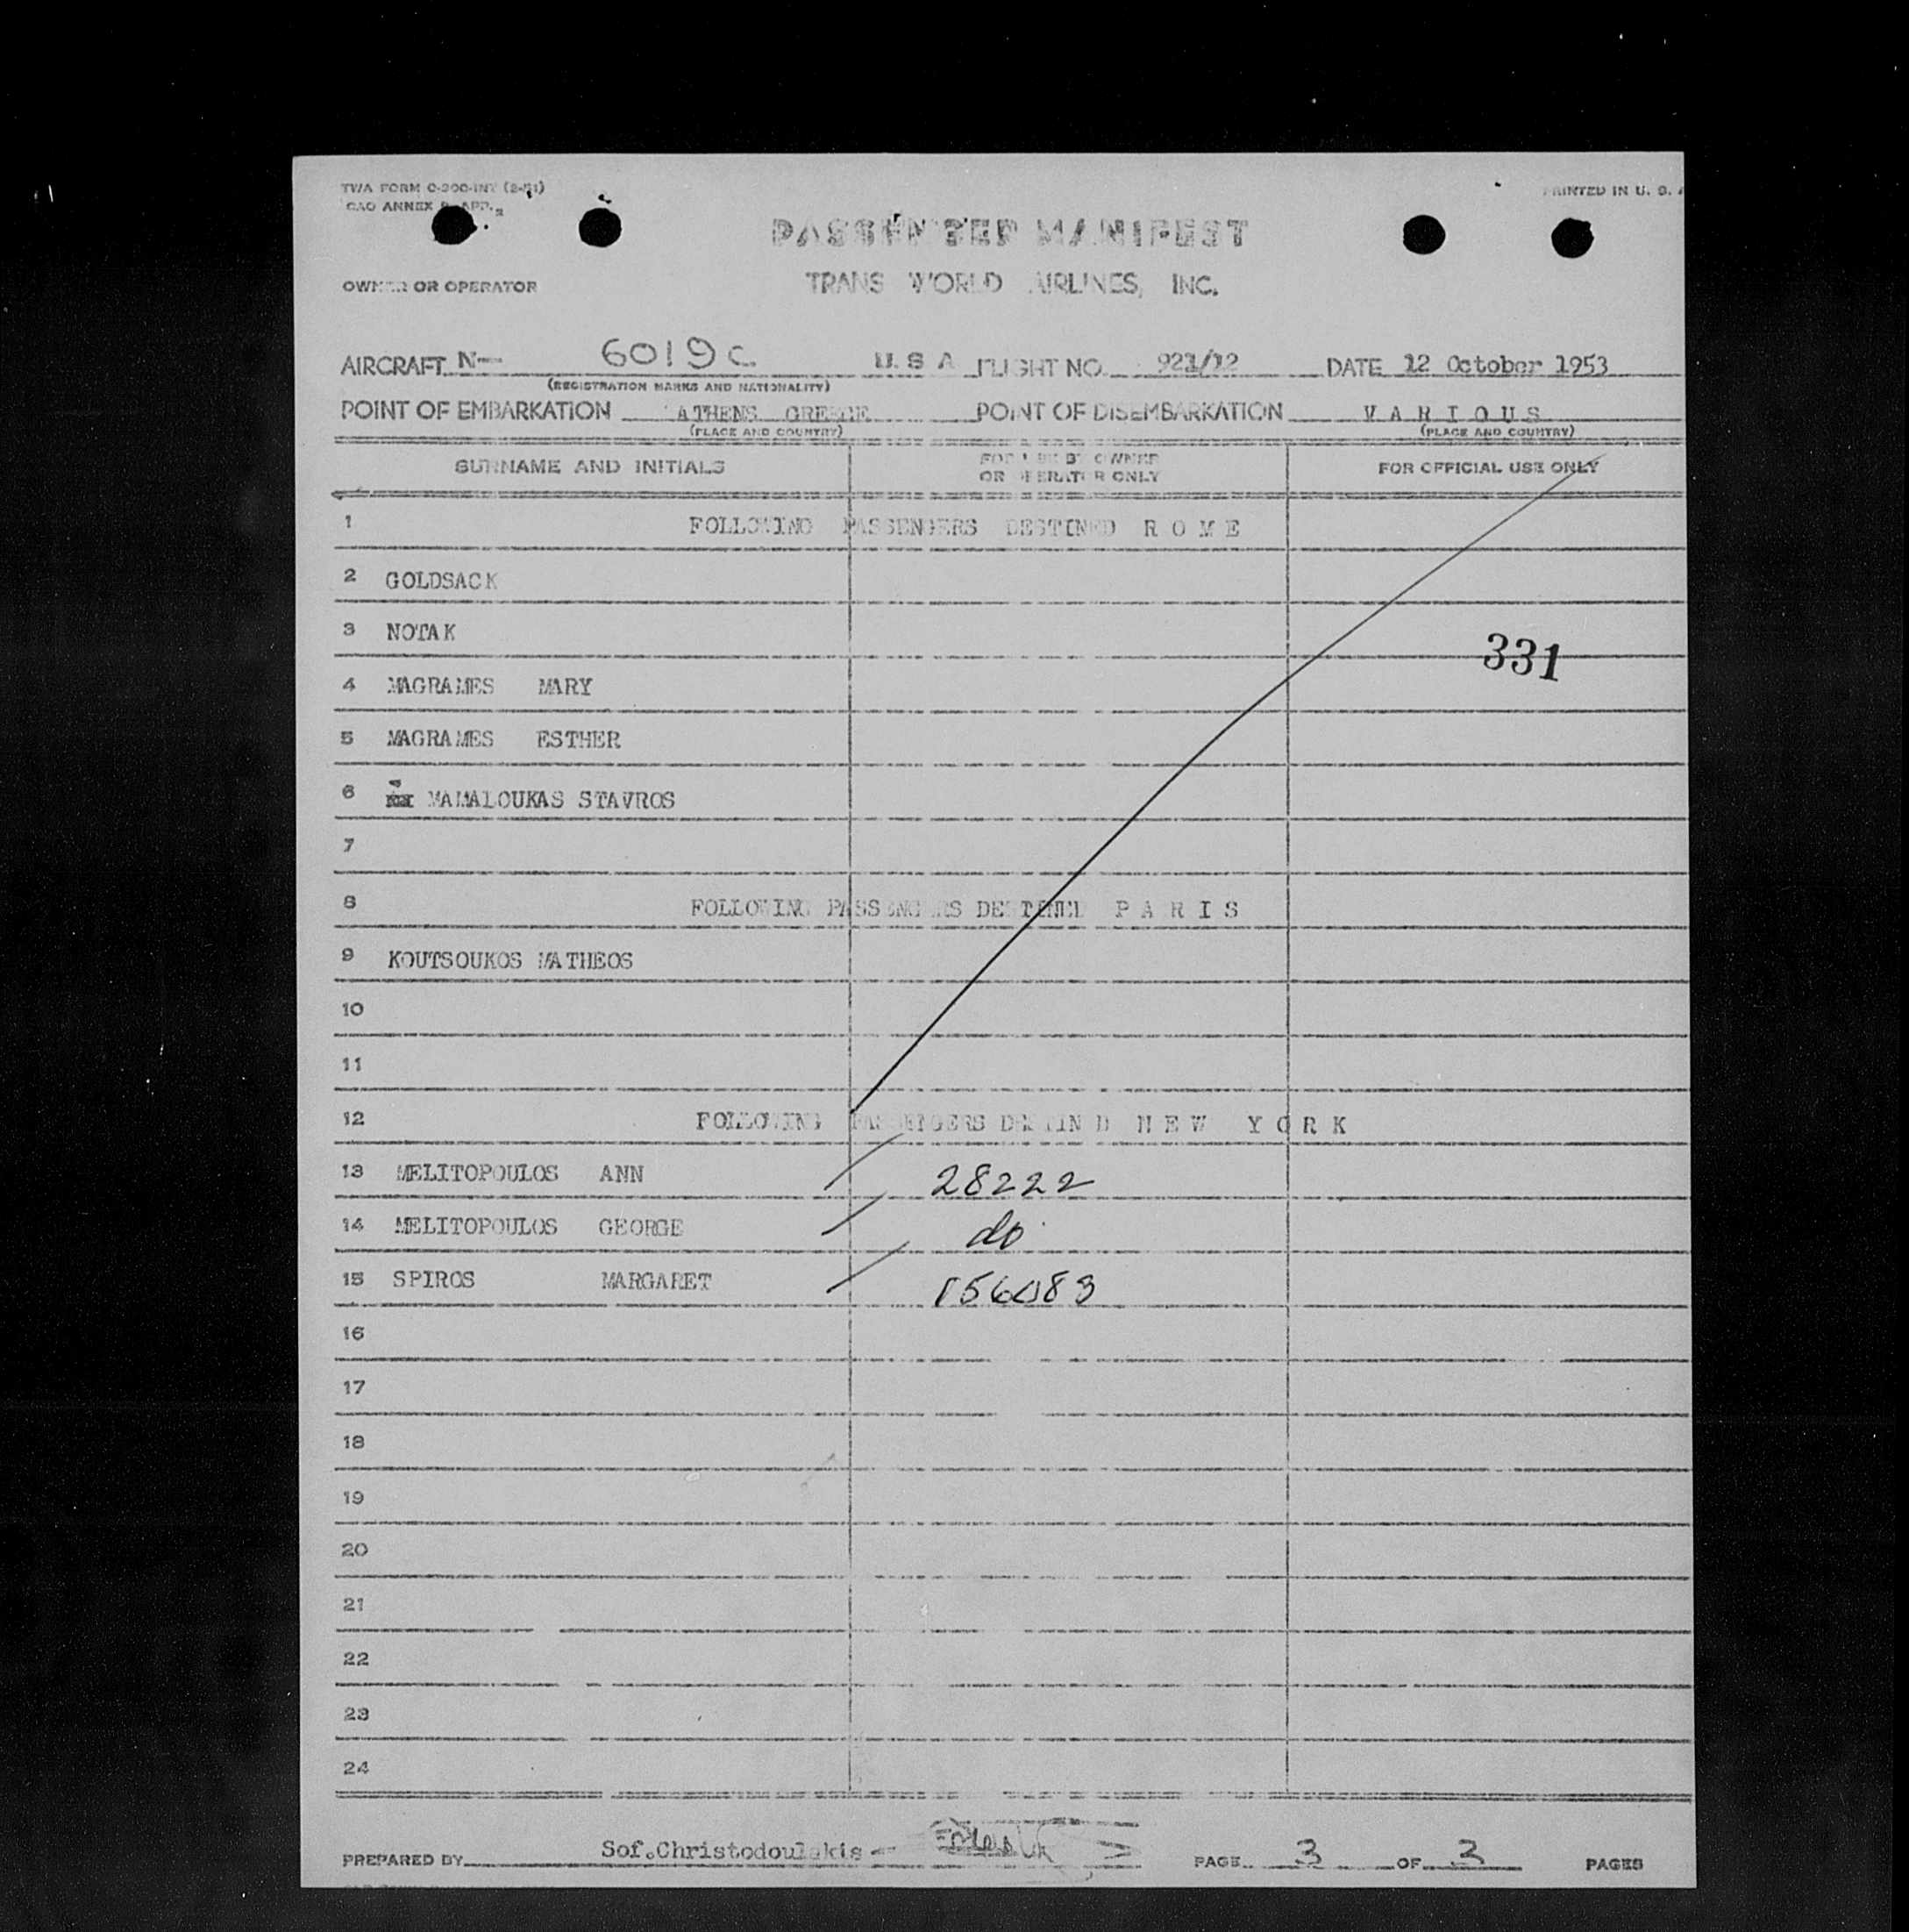 TWA FORM C-200-INT (2-51)
PRINTED IN U. S. A
CAO ANNEX 9, APP. 2
PASSENGER MANIFEST
OWNER OR OPERATOR
TRANS WORLD AIRLINES, INC.
AIRCRAFT N- 6019C U. S A FLIGHT NO. 921/12 DATE 12 October 1953
(REGISTRATION MARKS AND NATIONALITY)
POINT OF EMBARKATION ATHENS GREECE POINT OF DISEMBARKATION V A R I O U S
(PLACE AND COUNTRY) (PLACE AND COUNTRY)
SURNAME AND INITIALS FOR USE BY OWNER OR OPERATOR ONLY FOR OFFICIAL USE ONLY
1 FOLLOWING PASSENGERS DESTINED R O M E
2 GOLDSACK
3 NOTAK
331
4 MAGRAMES MARY
5 MAGRAMES ESTHER
6 MAMALOUKAS STAVROS
7
8 FOLLOWING PASSENGERS DESTINED P A R I S
9 KOUTSOUKOS MATHEOS
10
11
12 FOLLOWING PASSENGERS DESTINED N E W Y O R K
13 MELITOPOULOS ANN 28222
14 MELITOPOULOS GEORGE do
15 SPIROS MARGARET
16
17
18
19
20
21
22
23
24
PREPARED BY Sof.Christodoulakis PAGE 3 OF 3 PAGES